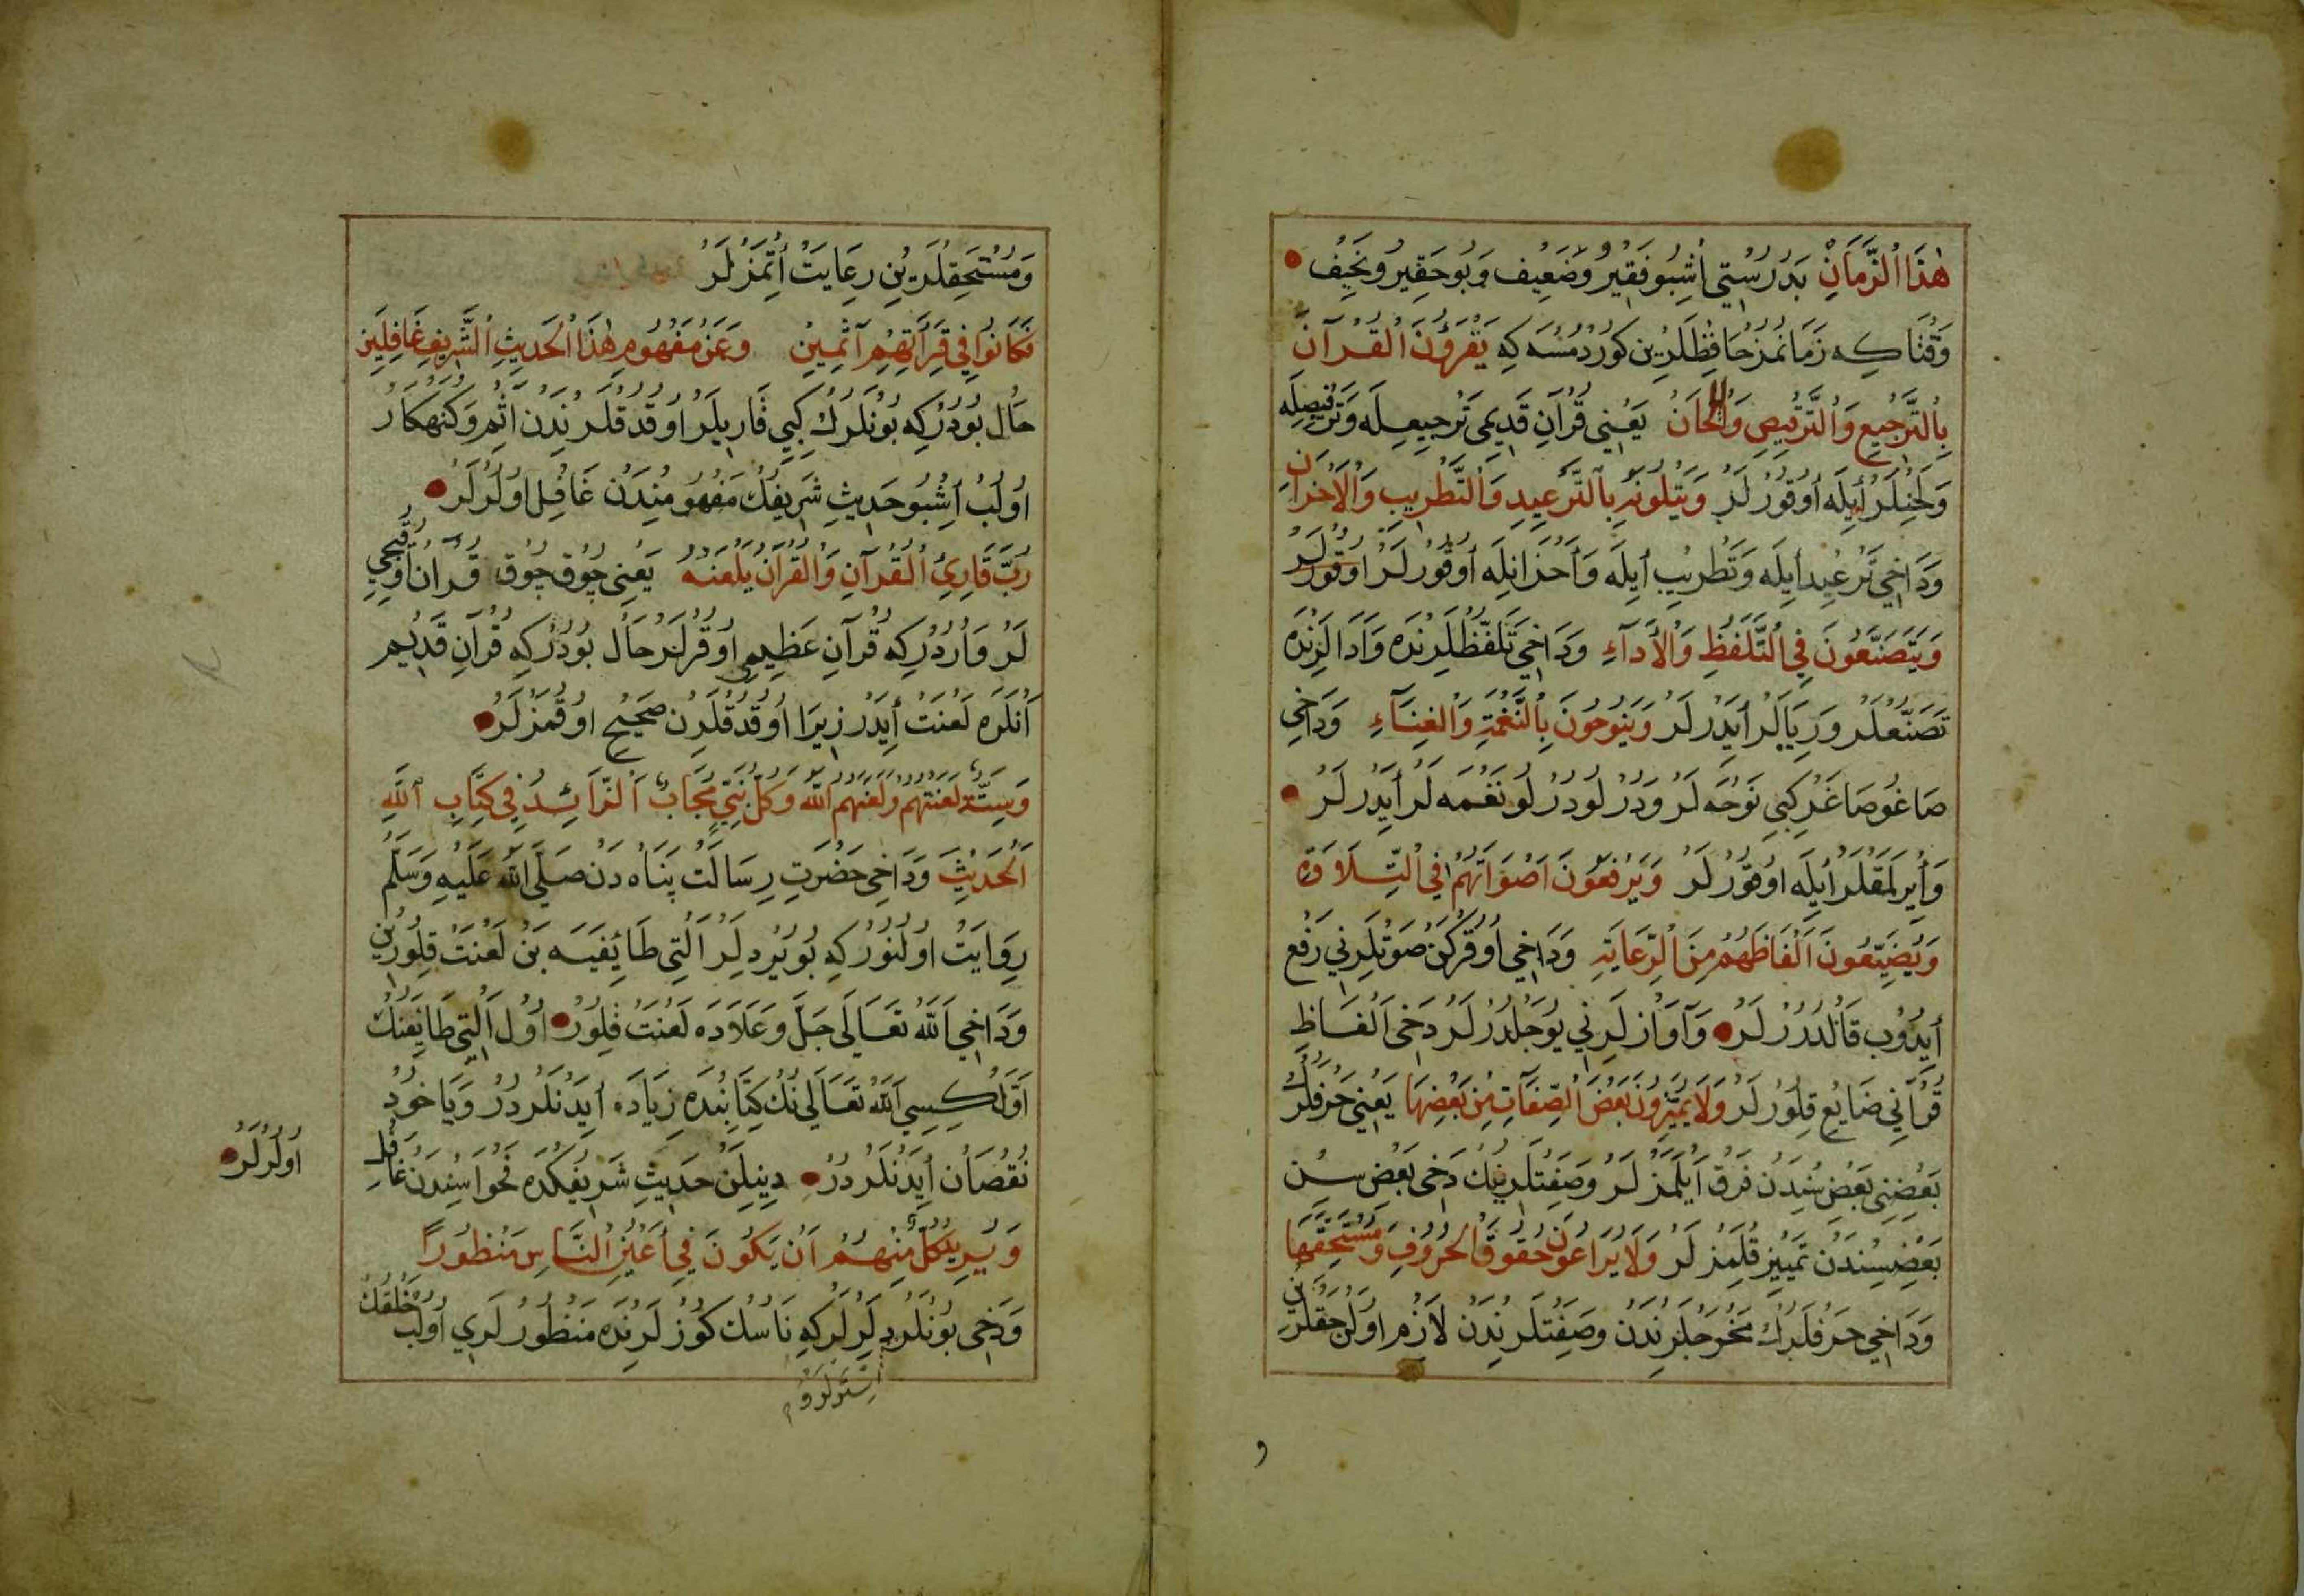 هٰذَا الزَّمَانِ بَدُرُسْتِي اُشْبُو فَقِيرُ وَضَعِيف وَبُو حَقِيرُ وَنَحِيف
وَقْتَاكِه زَمَانُمُز حَافِظْلَرِين كُورْدُمْسَه كِه يَقْرَؤُنَ الْقُرْآنَ
بِالتَّرْجِيعِ وَالتَّرْقِيصِ وَالْاَلْحَانْ يَعْنِي قُرْآنِ قَدِيمِي تَرْجِيعِلَه وَتَرْقِيصِلَه
وَلَحِنْلَرْ اَيلَه اُوقُورْلَرْ وَيَتْلُونَهُ بِالتَّرْعِيدِ وَالتَّطْرِيبِ وَالْاَحْزَانِ
وَدَاخِي تَرْعِيد اَيلَه وَتَطْرِيب اَيلَه وَاَحْزَانِلَه اُوقُورْلَرْ اُوقُورْلَر
وَيَتَصَنَّعُونَ فِي التَّلَفُّظِ وَالْاَدَآءِ وَدَاخِي تَلَفُّظْلَرِنْدَه وَاَدَالَرِنْدَه
تَصَنُّعْلَرْ وَرِيَالَرْ اَيدَرْلَرْ وَيَنُوحُونَ بِالنَّغْمَةِ وَالْغِنَآءِ وَدَاخِي
صَاغُو صَاغَرْ كِبِي نَوْحَه لَرْ وَدُرْلُو دُرْلُو نَغْمَه لَرْ اَيدَرْلَرْ
وَاَيِرْلَمَقْلَرْ اَيلَه اُوقُورْلَرْ وَيَرْفَعُونَ اَصْوَاتَهُمْ فِي التِّلَاوَةِ
وَيُضَيِّعُونَ اَلْفَاظَهُمْ مِنَ الرِّعَايَةِ وَدَاخِي اُوقُرْكَنْ صَوْتْلَرِنِي رَفْع
اَيدُوب قَالْدُرُرْلَرْ وَآوَازْلَرِنِي يُوجَلْدُرْلَرْ دَخِي اَلْفَاظِ
قُرْآنِي ضَايِع قِلُورْلَرْ وَلَا يُمَيِّزُونَ بَعْضَ الصِّفَاتِ مِنْ بَعْضِهَا يَعْنِي حَرْفْلَرُكْ
بَعْضِنِي بَعْضِسِنْدَنْ فَرْق اَيلَمَزْلَرْ وَصِفَتْلَرِينُكْ دَخِي بَعْضِسِن
بَعْضِسِنْدَنْ تَمْيِيز قِلْمَزْلَرْ وَلَا يُرَاعُونَ حُقُوقَ الْحُرُوفِ وَمُسْتَحَقَّهَا
وَدَاخِي حَرْفْلَرُكْ مَخْرَجْلَرِنْدَنْ وَصِفَتْلَرِنْدَنْ لَازِم اُولَنْ حَقْلَرِن
وَمُسْتَحَقْلَرِينِ رِعَايَتْ اَتْمَزْلَرْ
فَكَانُوا فِي قِرَائَتِهِمْ آثِمِينَ وَعَنْ مَفْهُومِ هٰذَا الْحَدِيثِ الشَّرِيفِ غَافِلِينَ
حَال بُودُرْكِه بُونْلَرُكْ كِبِي قَارِيلَرْ اُوقُدُقْلَرِنْدَنْ آثِم وَكُنَهْكَار
اُولُبْ اُشْبُو حَدِيثِ شَرِيفُكْ مَفْهُومِنْدَنْ غَافِل اُولُرْلَرْ
رُبَّ قَارِئِ الْقُرْآنِ وَالْقُرْآنُ يَلْعَنُهُ يَعْنِي چُوق چُوق قُرْآن اُوقِيجِي
لَرْ وَارْدُرْكِه قُرْآنِ عَظِيمِي اُوقُرْلَرْ حَال بُودُرْكِه قُرْآنِ قَدِيم
اَنْلَرَه لَعْنَتْ اَيدَرْ زِيرَا اُوقُدُقْلَرِنْ صَحِيح اُوقُمَزْلَرْ
وَسِتَّةٌ لَعَنْتُهُمْ وَلَعَنَهُمُ اللهُ وَكُلُّ نَبِيٍّ مُجَابٌ اَلزَّائِدُ فِي كِتَابِ اللهِ
اَلْحَدِيثَ وَدَاخِي حَضْرَتِ رِسَالَتْ پَنَاه دَنْ صَلَّى اللهُ عَلَيْهِ وَسَلَّمَ
رِوَايَتْ اُولُنُورْكِه بُويُرْدِلَرْ اَلْتِي طَائِفَيَه بَنْ لَعْنَتْ قِلُورِين
وَدَاخِي اَللهُ تَعَالَى جَلَّ وَعَلَادَه لَعْنَتْ قِلُورْ اُول اَلْتِي طَائِفَنُكْ
اَوَّلْكِيسِي اَللهُ تَعَالَى نُكْ كِتَابِنْدَه زِيَادَه اَيدَنْلَرْدُرْ وَيَا خُودْ
نُقْصَان اَيدَنْلَرْدُرْ دِينِلَنْ حَدِيثِ شَرِيفُكْدَه فَحْوَاسِنْدَنْ غَافِل
اُولُرْلَرْ
وَيُرِيدُ كُلٌّ مِنْهُمْ اَنْ يَكُونَ فِي اَعْيُنِ النَّاسِ مَنْظُورًا
وَدَخِي بُونْلَرْ دِلَرْلَرْكِه نَاسُكْ كُوزْلَرِنْدَه مَنْظُورْلَرِي اُولُبْ خَلْقُكْ
اِسْتَرْلَرْ